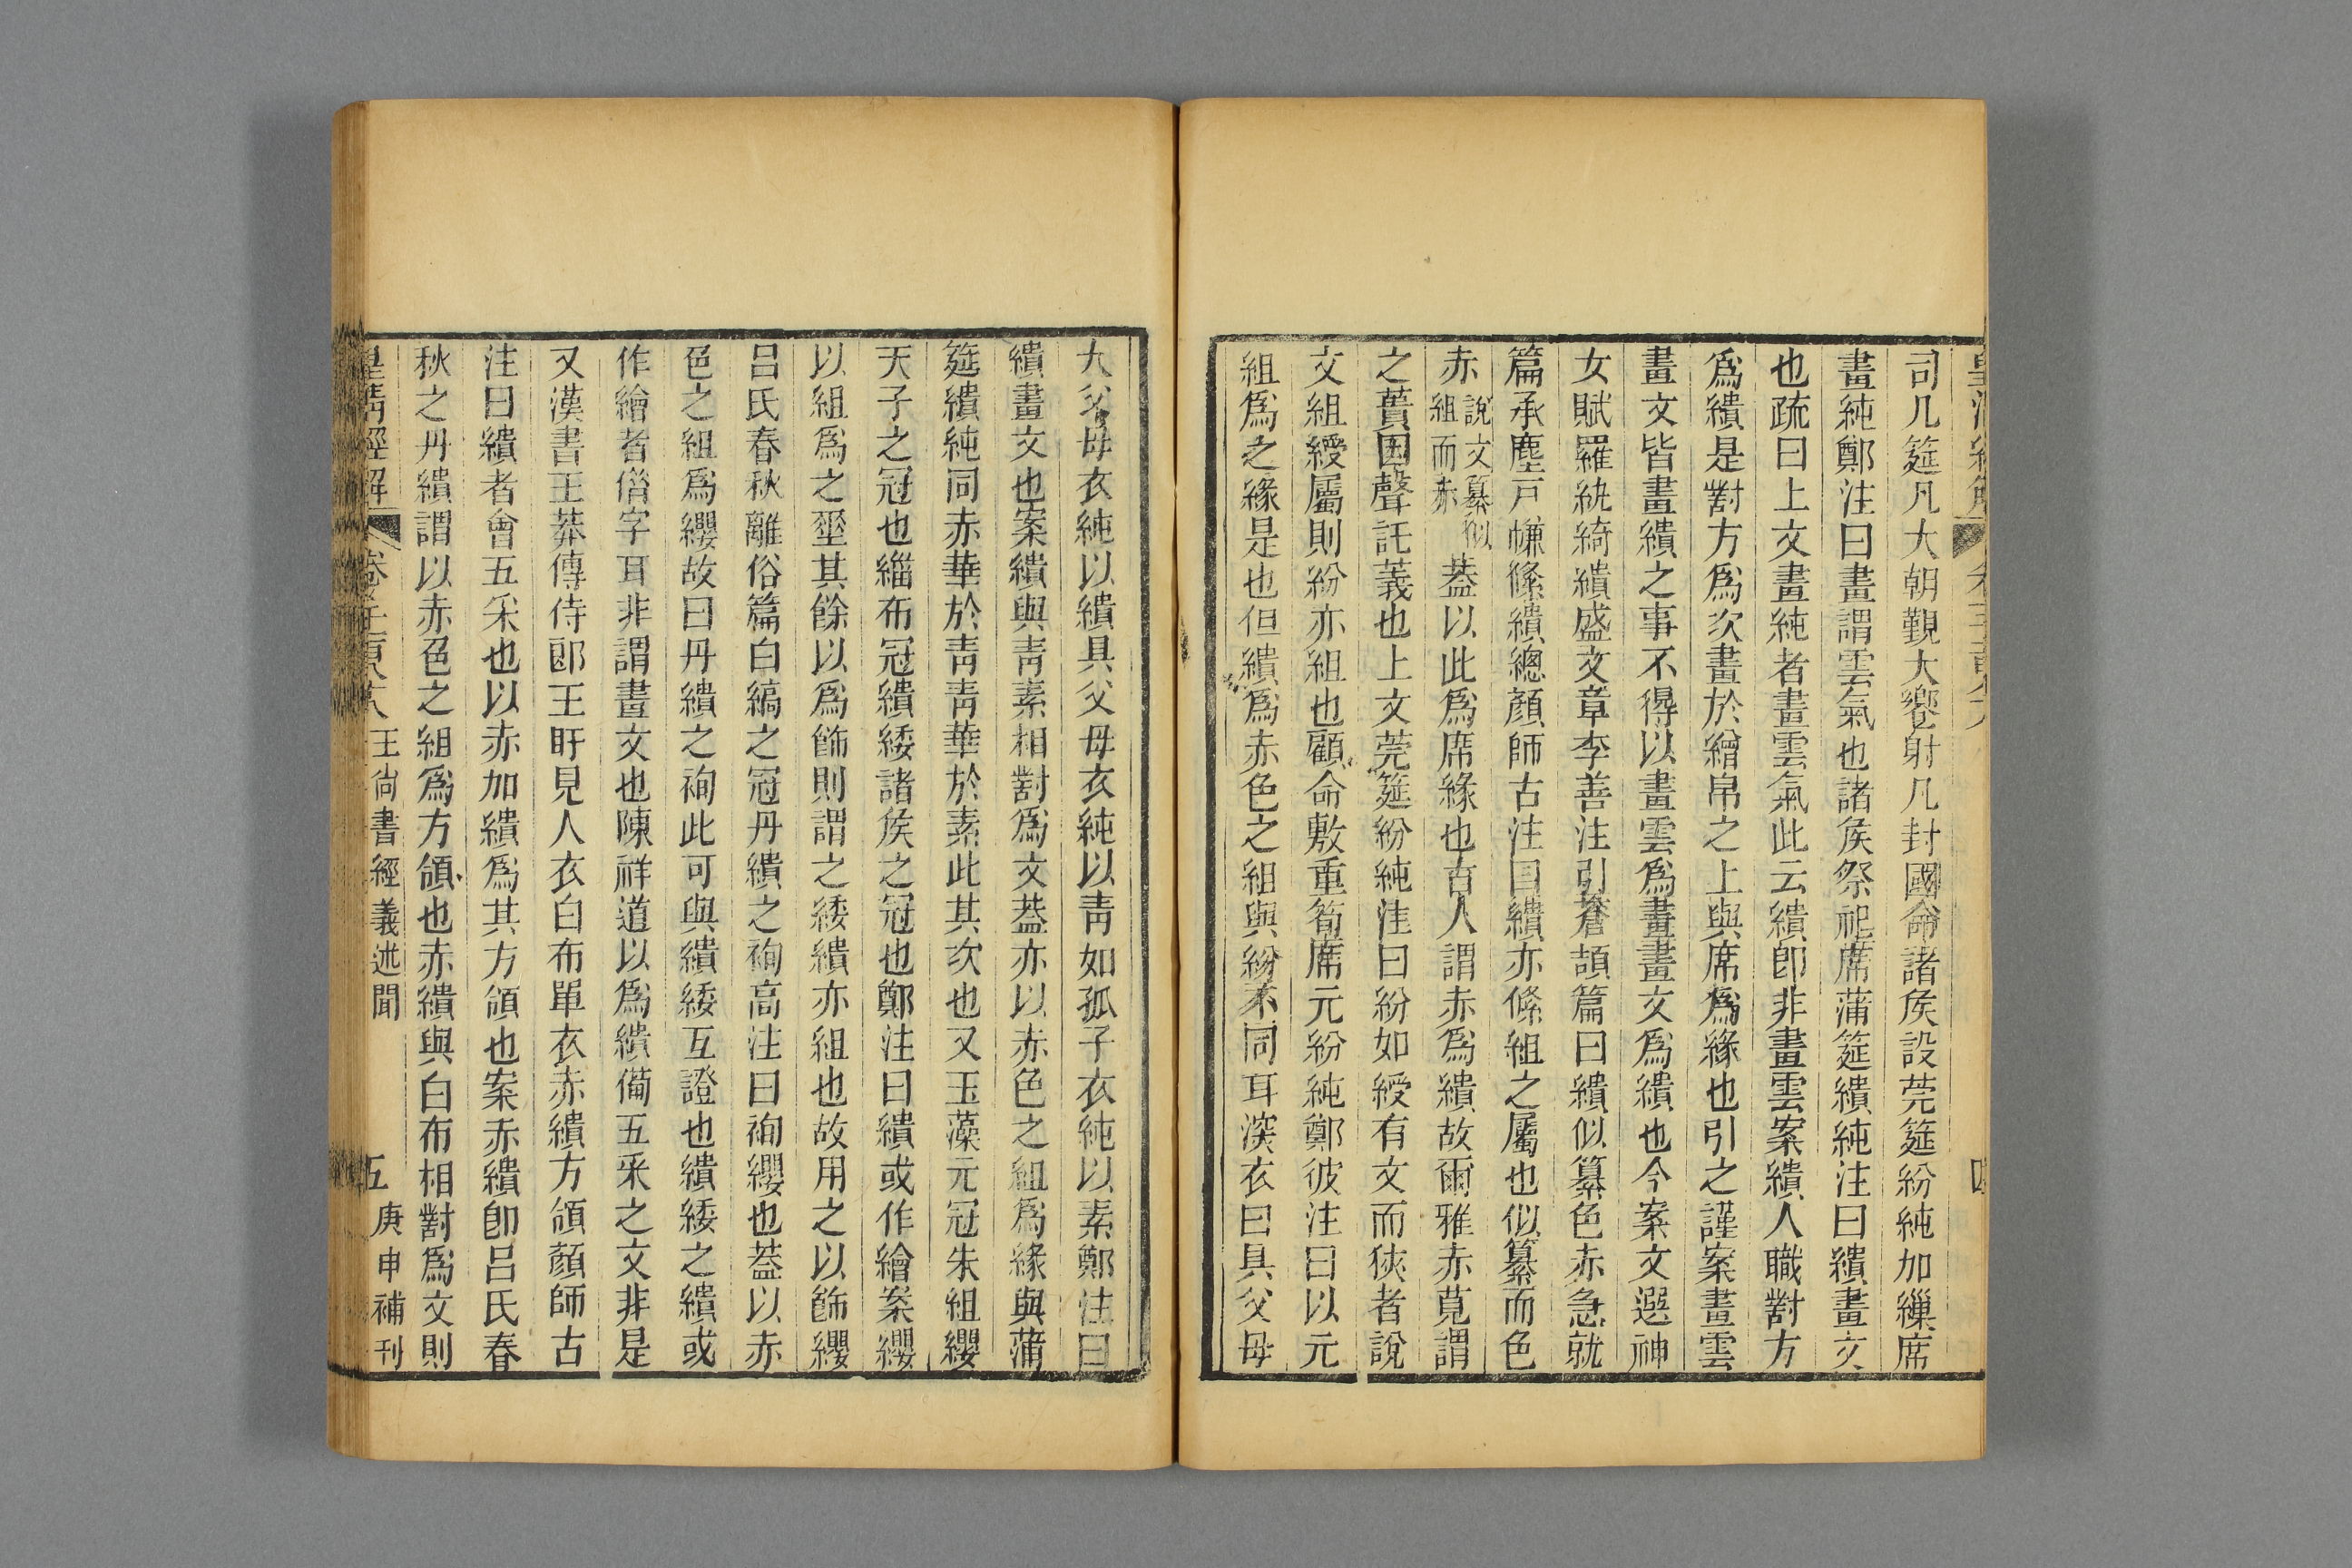 司几筵凡大朝覲大饗射凡封國命諸矦設莞筵紛純加繅席
畫純鄭注曰畫謂雲氣也諸矦祭祀席蒲筵繢純注曰繢畫文
也疏曰上文畫純者畫雲氣此云繢卽非畫雲案繢人職對方
爲繢是對方爲次畫於繒帛之上與席爲緣也引之謹案畫雲
畫文皆畫繢之事不得以畫雲爲畫畫文爲繢也今案文選神
女賦羅紈綺繢盛文章李善注引蒼頡篇曰繢似纂色赤急就
篇承塵戸㡘絛繢總顏師古注曰繢亦絛組之屬也似纂而色
赤說文纂似組而赤葢以此爲席緣也古人謂赤爲繢故爾雅赤莧謂
之蕢因聲託義也上文莞筵紛純注曰紛如綬有文而狹者說
文組綬屬則紛亦組也顧命敷重筍席元紛純鄭彼注曰以元
組爲之緣是也但繢爲赤色之組與紛不同耳深衣曰具父母
大父母衣純以繢具父母衣純以青如孤子衣純以素鄭注曰
繢畫文也案繢與青素相對爲文葢亦以赤色之組爲緣與蒲
筵繢純同赤華於青青華於素此其次也又玉藻元冠朱組纓
天子之冠也緇布冠繢緌諸矦之冠也鄭注曰繢或作繪案纓
以組爲之垩其餘以爲飾則謂之緌繢亦組也故用之以飾纓
呂氏春秋離俗篇白縞之冠丹繢之袧高注曰袧纓也葢以赤
色之組爲纓故曰丹繢之袧此可與繢緌互證也繢緌之繢或
作繪者借字耳非謂畫文也陳祥道以爲繢備五采之文非是
又漢書王莽傳侍郎王盱見人衣白布單衣赤繢方領顏師古
注曰繢者會五采也以赤加繢爲其方領也案赤繢卽呂氏春
秋之丹繢謂以赤色之組爲方領也赤繢與白布相對爲文則
皇清經解 王尙書經義述聞 五 庚申補刊